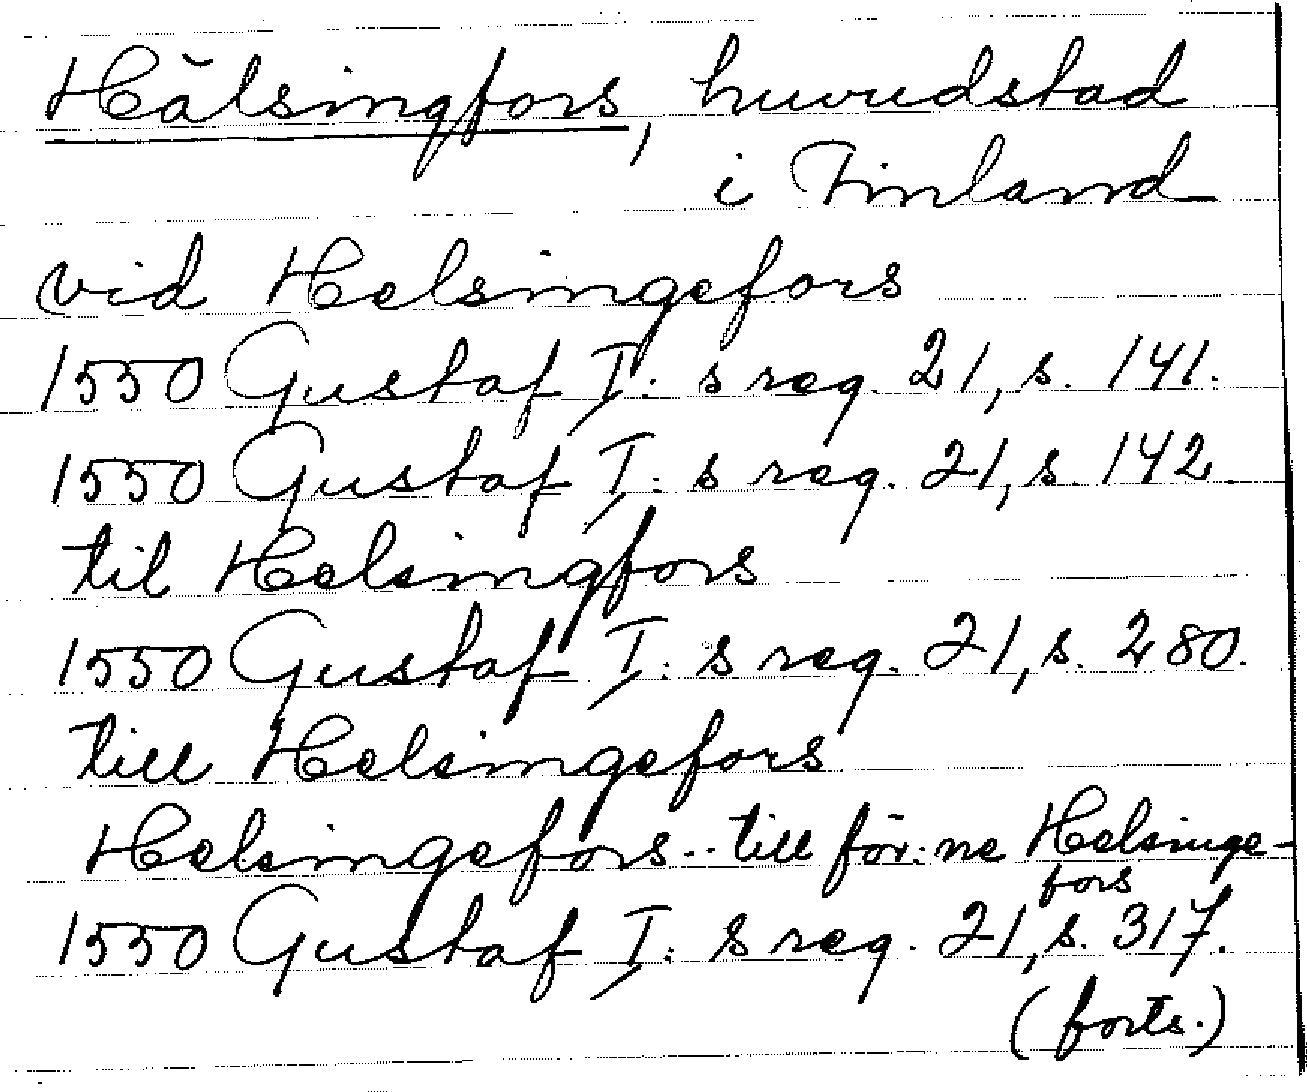 Hälsingfors, huvudstad
i Finland
vid Helsingefors
1550 Gustaf I:s reg. 21, s. 141.
1550 Gustaf I:s reg. 21, s. 142.
til Helsingfors
1550 Gustaf I:s reg. 21, s. 280.
till Helsingefors
Helsingefors .. till för:ne Helsinge-
fors
1550 Gustaf I:s reg. 21, s. 317.
(forts.)